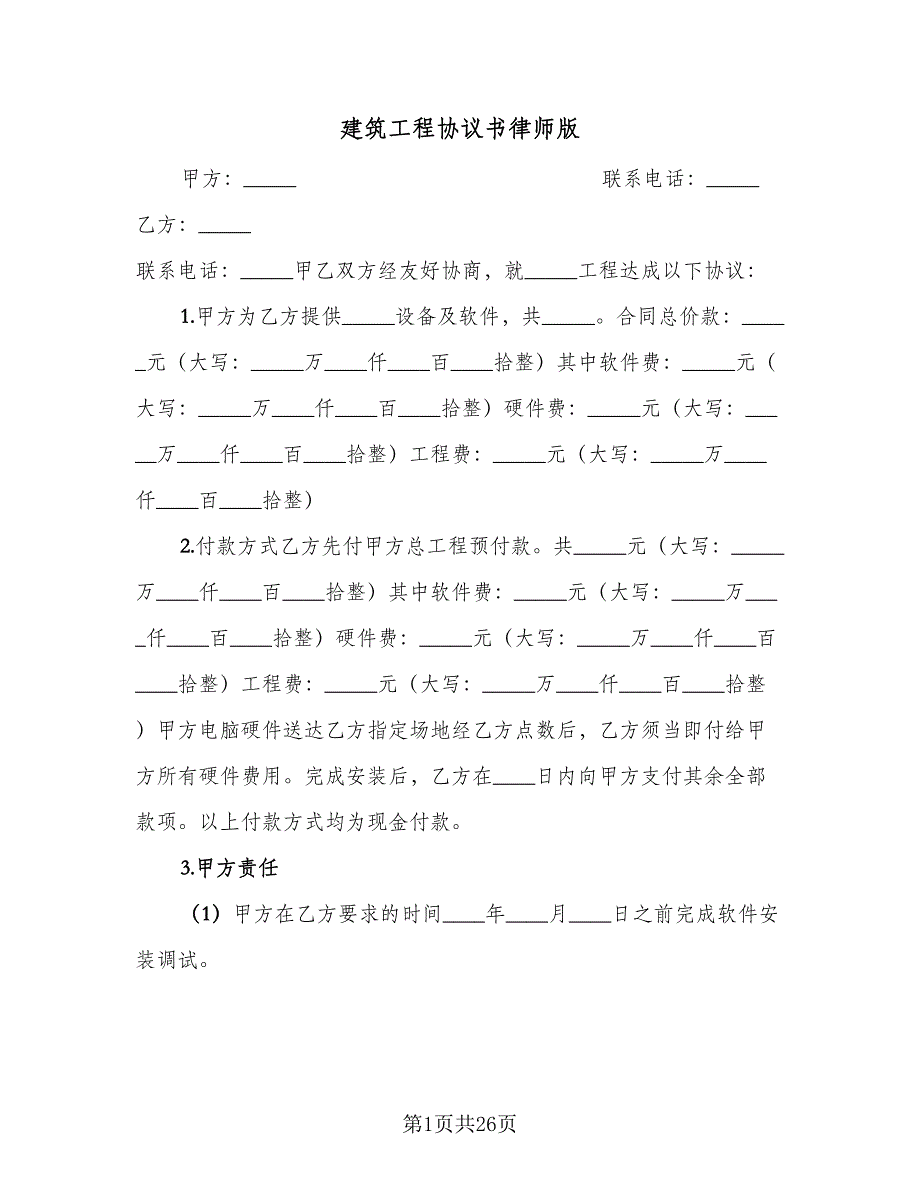 建筑工程协议书律师版
甲方：_____ 联系电话：_____
乙方：_____
联系电话：_____甲乙双方经友好协商，就_____工程达成以下协议：
1.甲方为乙方提供_____设备及软件，共_____。合同总价款：____
_元（大写：_____万____仟____百____拾整）其中软件费：_____元（
大写：_____万____仟____百____拾整）硬件费：_____元（大写：___
__万____仟____百____拾整）工程费：_____元（大写：_____万____
仟____百____拾整）
2.付款方式乙方先付甲方总工程预付款。共_____元（大写：_____
万____仟____百____拾整）其中软件费：_____元（大写：_____万___
_仟____百____拾整）硬件费：_____元（大写：_____万____仟____百
____拾整）工程费：_____元（大写：_____万____仟____百____拾整
）甲方电脑硬件送达乙方指定场地经乙方点数后，乙方须当即付给甲
方所有硬件费用。完成安装后，乙方在____日内向甲方支付其余全部
款项。以上付款方式均为现金付款。
3.甲方责任
（1）甲方在乙方要求的时间____年____月____日之前完成软件安
装调试。
第1页共26页